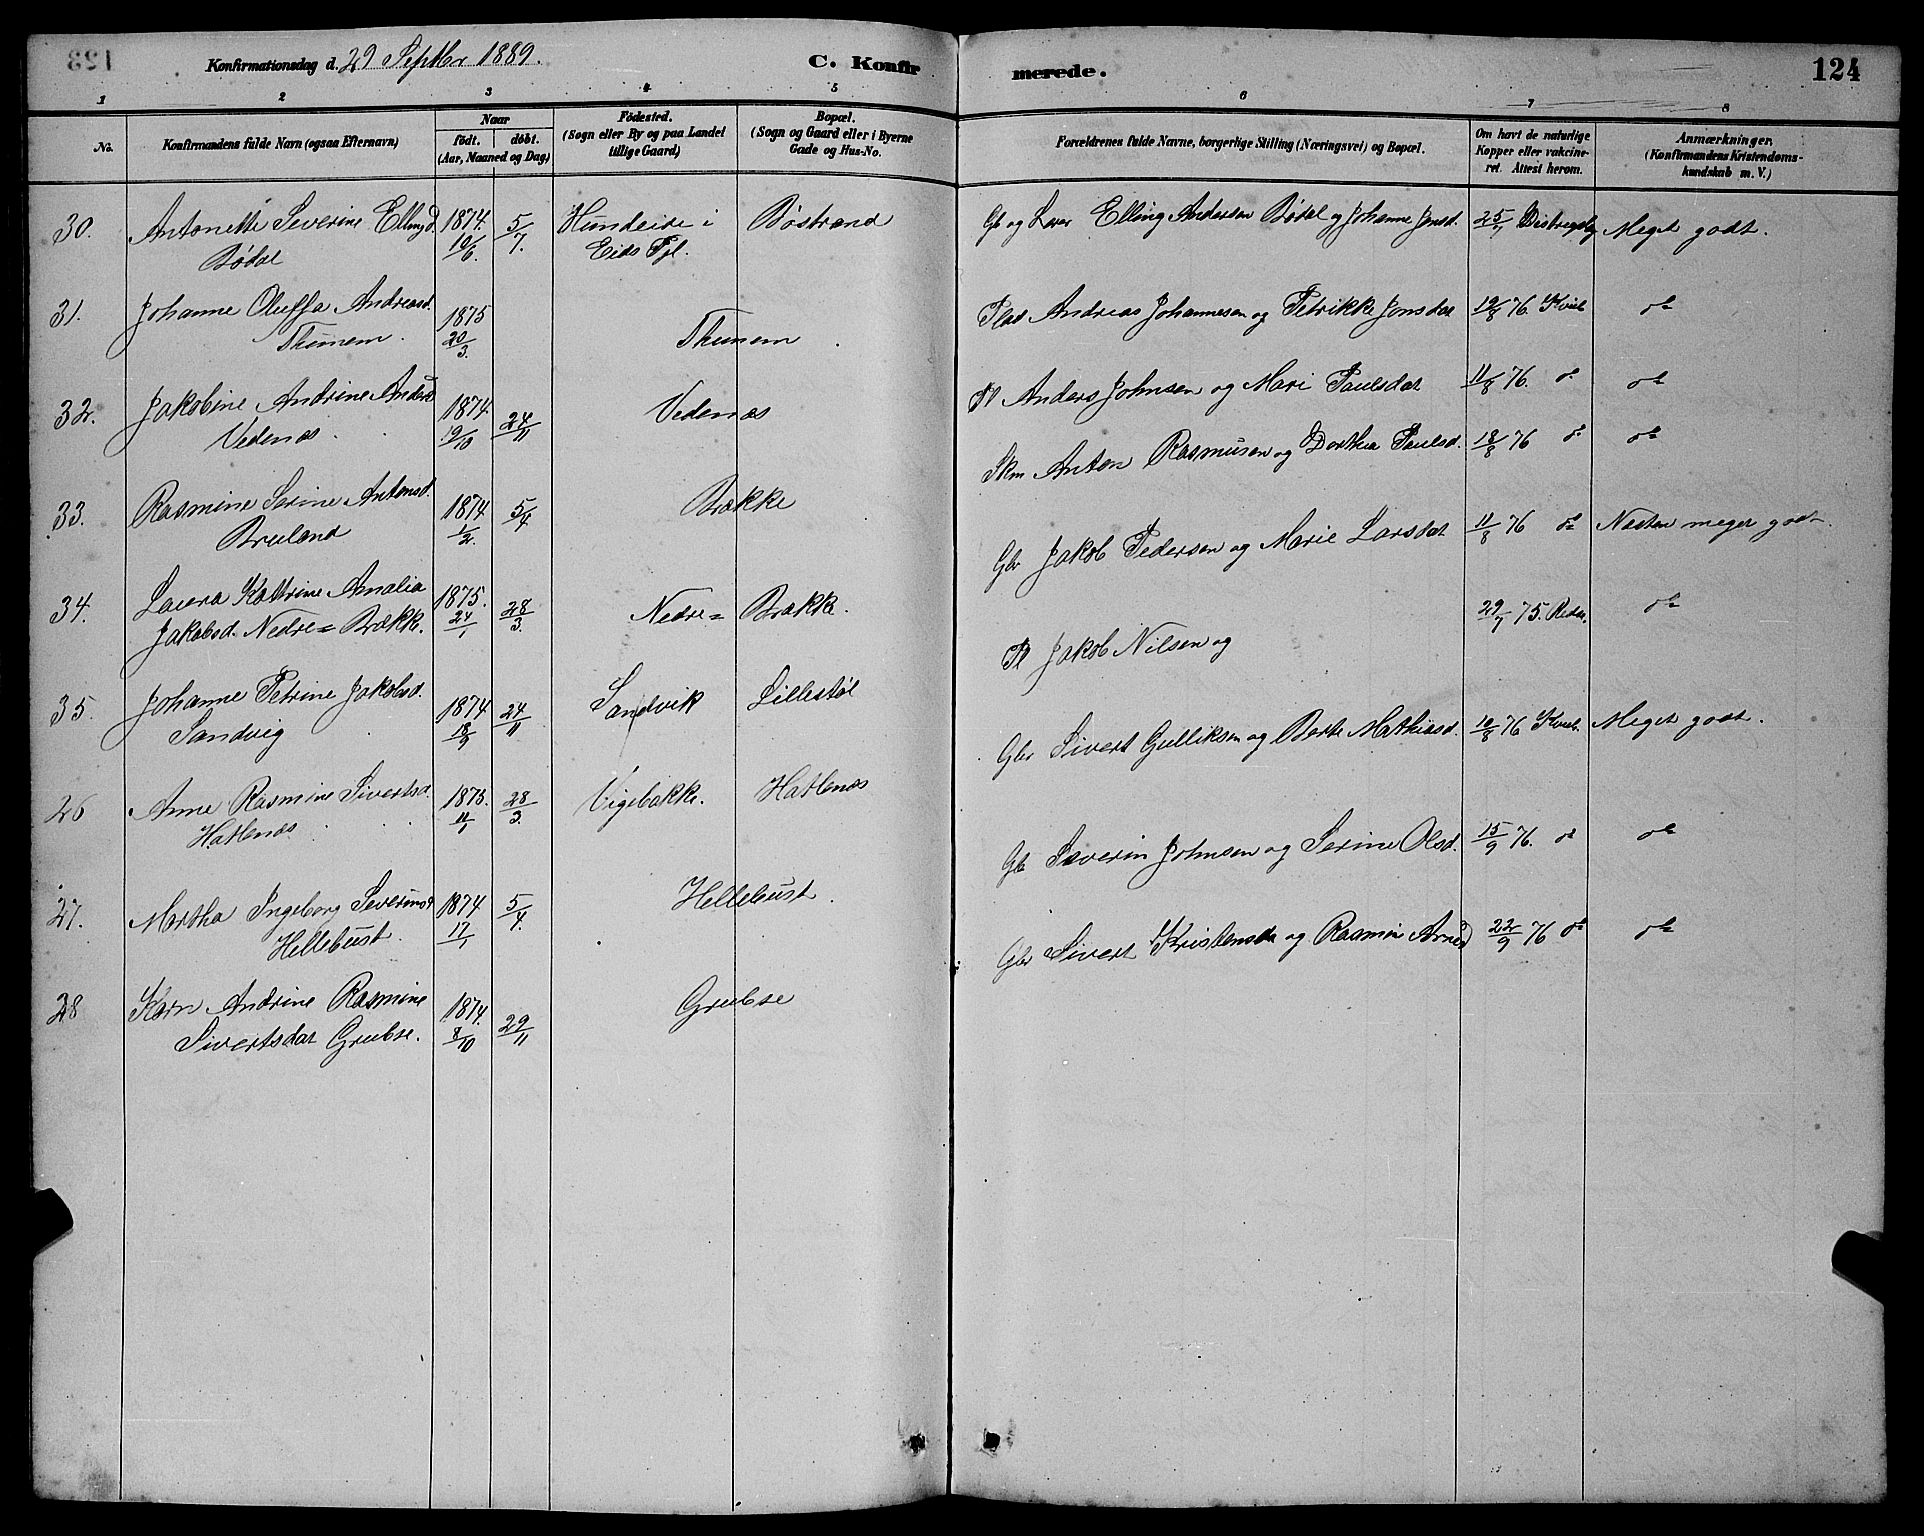 123
Konfirmationsdag d. 29 Septbr 1889.
C. Konfirmerede.
124
1 2 3 4 5 6 7 8
No.
Konfirmandens fulde Navn (ogsaa Efternavn)
Naar
født. døbt.
(Aar, Maaned og Dag)
Fødested.
(Sogn eller By og paa Landet
tillige Gaard)
Bopæl.
(Sogn og Gaard eller i Byerne
Gade og Hus-No.
Forældrenes fulde Navne, borgerlige Stilling (Næringsvei) og Bopæl.
Om havt de naturlige
Kopper eller vakcine-
ret. Attest herom.
Anmærkninger.
(Konfirmandens Kristendoms-
kundskab m. V.)
30. Antonette Severine Ellingd. 1874. 5/7. Hundeide i Bøstrand Gb og Lærer Elling Andersen Bødal og Johanne Jonsd. 25/7 Meget godt.
Bødal 10/6. Eids Pgl.
31. Johanne Oluffa Andreasd. 1875 Thunem Plds Andreas Johannesen og Petrikke Jonsdat 19/8 76. Kvil do
Thunem. 20/3.
32. Jakobine Andrine Anders 1874. 24/11 Vedenæs Pl Anders Johnsen og Mari Paulsdat 11/8 76. do do
Vedenæs. 19/10
33. Rasmine Serine Antonsd. 1874 5/4 Brække Skm Anton Rasmusen og Dorthea Paulsd. 18/8 76 do do
Bruland 1/2.
34. Laura Katrine Amalia 1875. 28/3. Nedre= Brække. Gbr Jakob Pedersen og Marie Larsdat 11/8 76 do Næsten meget godt.
Jakobsd. Nedre= Brække. 24/1
35. Johanne Petrine Jakobsd. 1874 24/11 Sandvik Lillestøl Pl Jakob Nilsen og 29/7 75. do
Sandvig 18/9
26 Anne Rasmine Sivertsd. 1875. 28/3. Vigebakke. Hatlenæs Gbr Sivert Gulliksen og Berte Mathiasd. 10/8 76 Kvil. Meget godt.
Hatlenæs 11/1
27. Martha Ingeborg Severinsd 1874 5/4. Hellebust. Gbr Severin Johnsen og Serine Olsd. 15/9 76. do do
Hellebust. 17/1
28 Karn Andrine Rasmine 1874. 29/11 Grubse Gbr Sivert Kristensen og Rasmine Arnesd 22/9 76 do do
Sivertsdat Grubse. 8/10